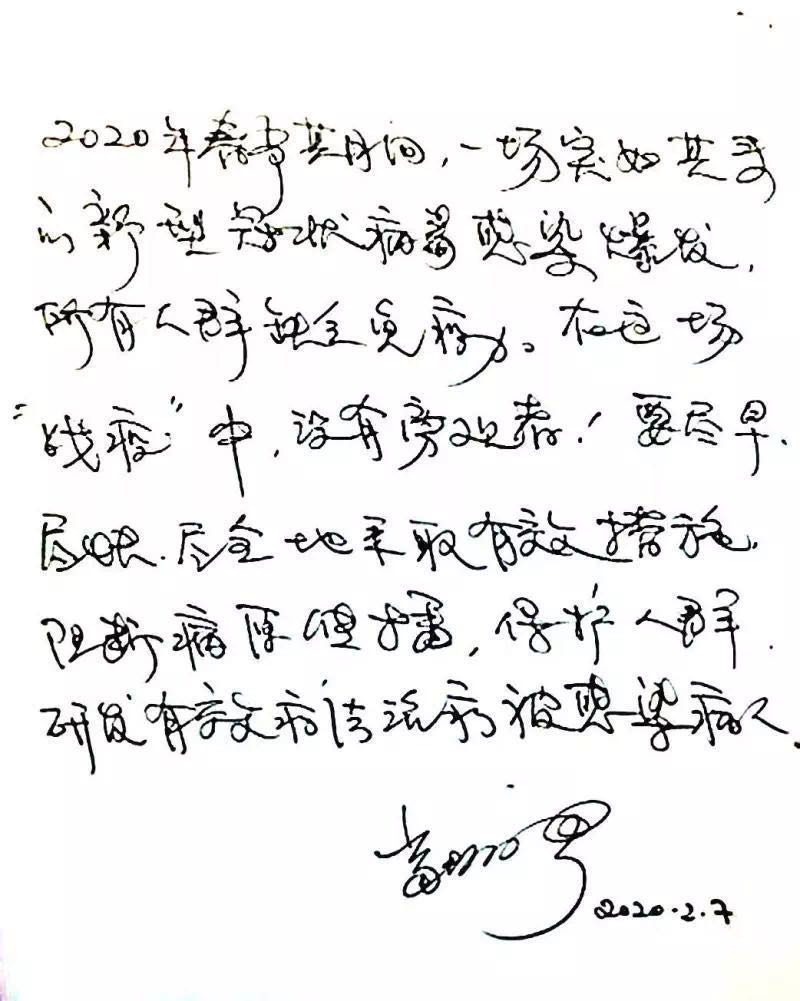 2020年春节其间，一场突如其来
的新型冠状病毒感染爆发，
所有人群缺乏免疫力。在这场
“战疫”中，没有旁观者！要尽早、
尽快、尽全地采取有效措施，
阻断病原传播，保护人群，
研发有效疗法治疗被感染病人
2020.2.7